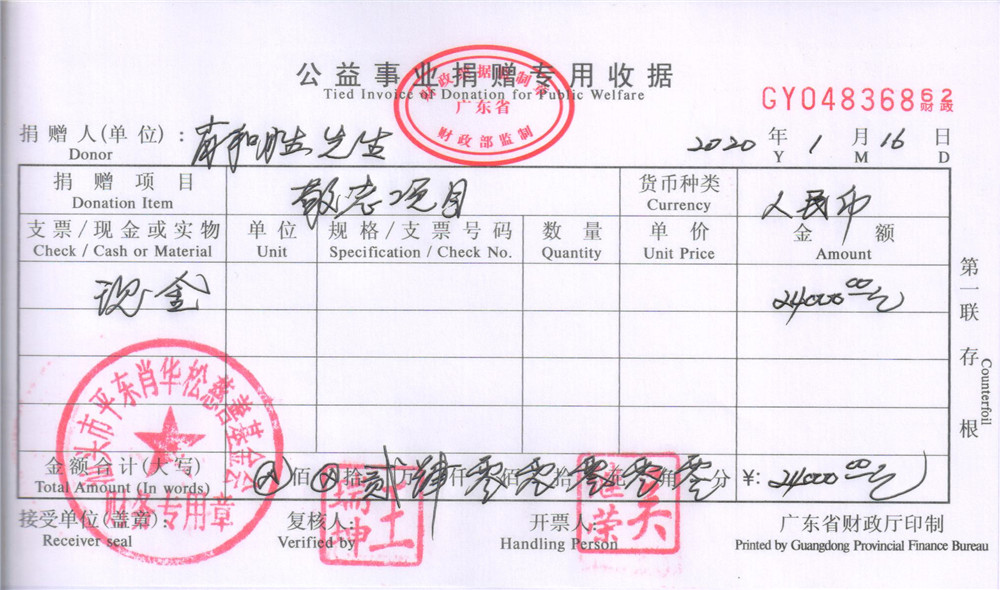 公益事业捐赠专用收据
Tied Invoice of Donation for Public Welfare
财政票据监制章
广东省
财政部监制
GY04836862
财政
捐赠人(单位):
先生
Donor
2020 年 1 月 16 日
Y M D
捐赠项目 敬老项目 货币种类 人民币
Donation Item Currency
支票/现金或实物 单位 规格/支票号码 数量 单价 金额
Check / Cash or Material Unit Specification / Check No. Quantity Unit Price Amount
现金 24000.00元
第一联存根
Counterfoil
汕头市平东肖华松慈善基金会
财务专用章
金额合计(大写) ⊗佰⊗拾贰万肆仟零佰零拾零元零角零分 ¥: 24000.00
Total Amount (In words)
接受单位(盖章): 复核人: 开票人: 广东省财政厅印制
Receiver seal Verified by Handling Person Printed by Guangdong Provincial Finance Bureau